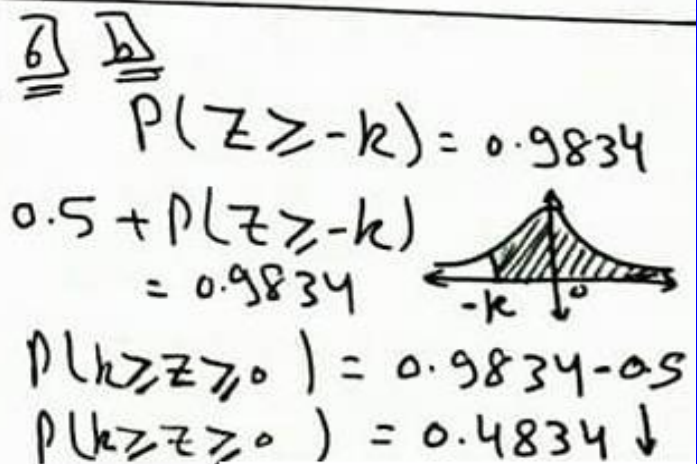 6 b
P(Z ≥ -k) = 0.9834
0.5 + P(Z ≥ -k)
= 0.9834
-k 0
P(k ≥ z ≥ 0) = 0.9834 - 0.5
P(k ≥ z ≥ 0) = 0.4834 ↓